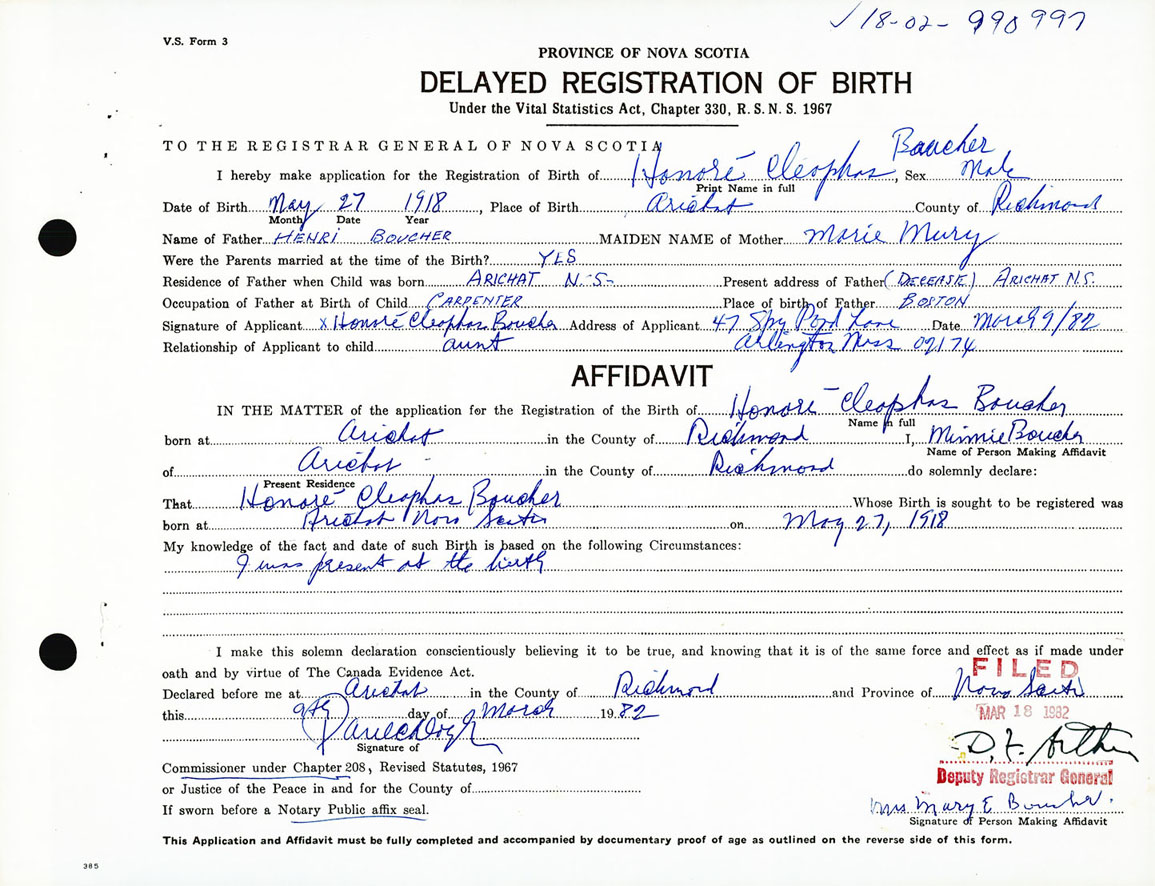 ✓ 18-02- 990 997
V.S. Form 3
PROVINCE OF NOVA SCOTIA
DELAYED REGISTRATION OF BIRTH
Under the Vital Statistics Act, Chapter 330, R. S. N. S. 1967
TO THE REGISTRAR GENERAL OF NOVA SCOTIA
Boucher
I hereby make application for the Registration of Birth of Honoré Cleophas, Sex Male
Print Name in full
Date of Birth May 27 1918, Place of Birth Arichat County of Richmond
Month Date Year
Name of Father HENRI BOUCHER MAIDEN NAME of Mother Marie Mury
Were the Parents married at the time of the Birth? YES
Residence of Father when Child was born ARICHAT N.S- Present address of Father (DECEASE) ARICHAT N.S.
Occupation of Father at Birth of Child CARPENTER Place of birth of Father BOSTON
Signature of Applicant x Honoré Cleophas Boucher Address of Applicant 47 Spy Pond Lane Date March 9/82
Relationship of Applicant to child aunt Arlington Mass 02174
AFFIDAVIT
IN THE MATTER of the application for the Registration of the Birth of Honoré Cleophas Boucher
Name in full
born at Arichat in the County of Richmond I, Minnie Boucher
Name of Person Making Affidavit
of Arichat in the County of Richmond do solemnly declare:
Present Residence
That Honoré Cleophas Boucher Whose Birth is sought to be registered was
born at Arichat Nova Scotia on May 27, 1918
My knowledge of the fact and date of such Birth is based on the following Circumstances:
I was present at the birth
I make this solemn declaration conscientiously believing it to be true, and knowing that it is of the same force and effect as if made under
oath and by virtue of The Canada Evidence Act.
FILED
Declared before me at Arichat in the County of Richmond and Province of Nova Scotia
this 9th day of March 1982
MAR 18 1982
Signature of
D. F.
Commissioner under Chapter 208, Revised Statutes, 1967
Deputy Registrar General
or Justice of the Peace in and for the County of
If sworn before a Notary Public affix seal.
Mrs. Mary E Boucher.
Signature of Person Making Affidavit
This Application and Affidavit must be fully completed and accompanied by documentary proof of age as outlined on the reverse side of this form.
385